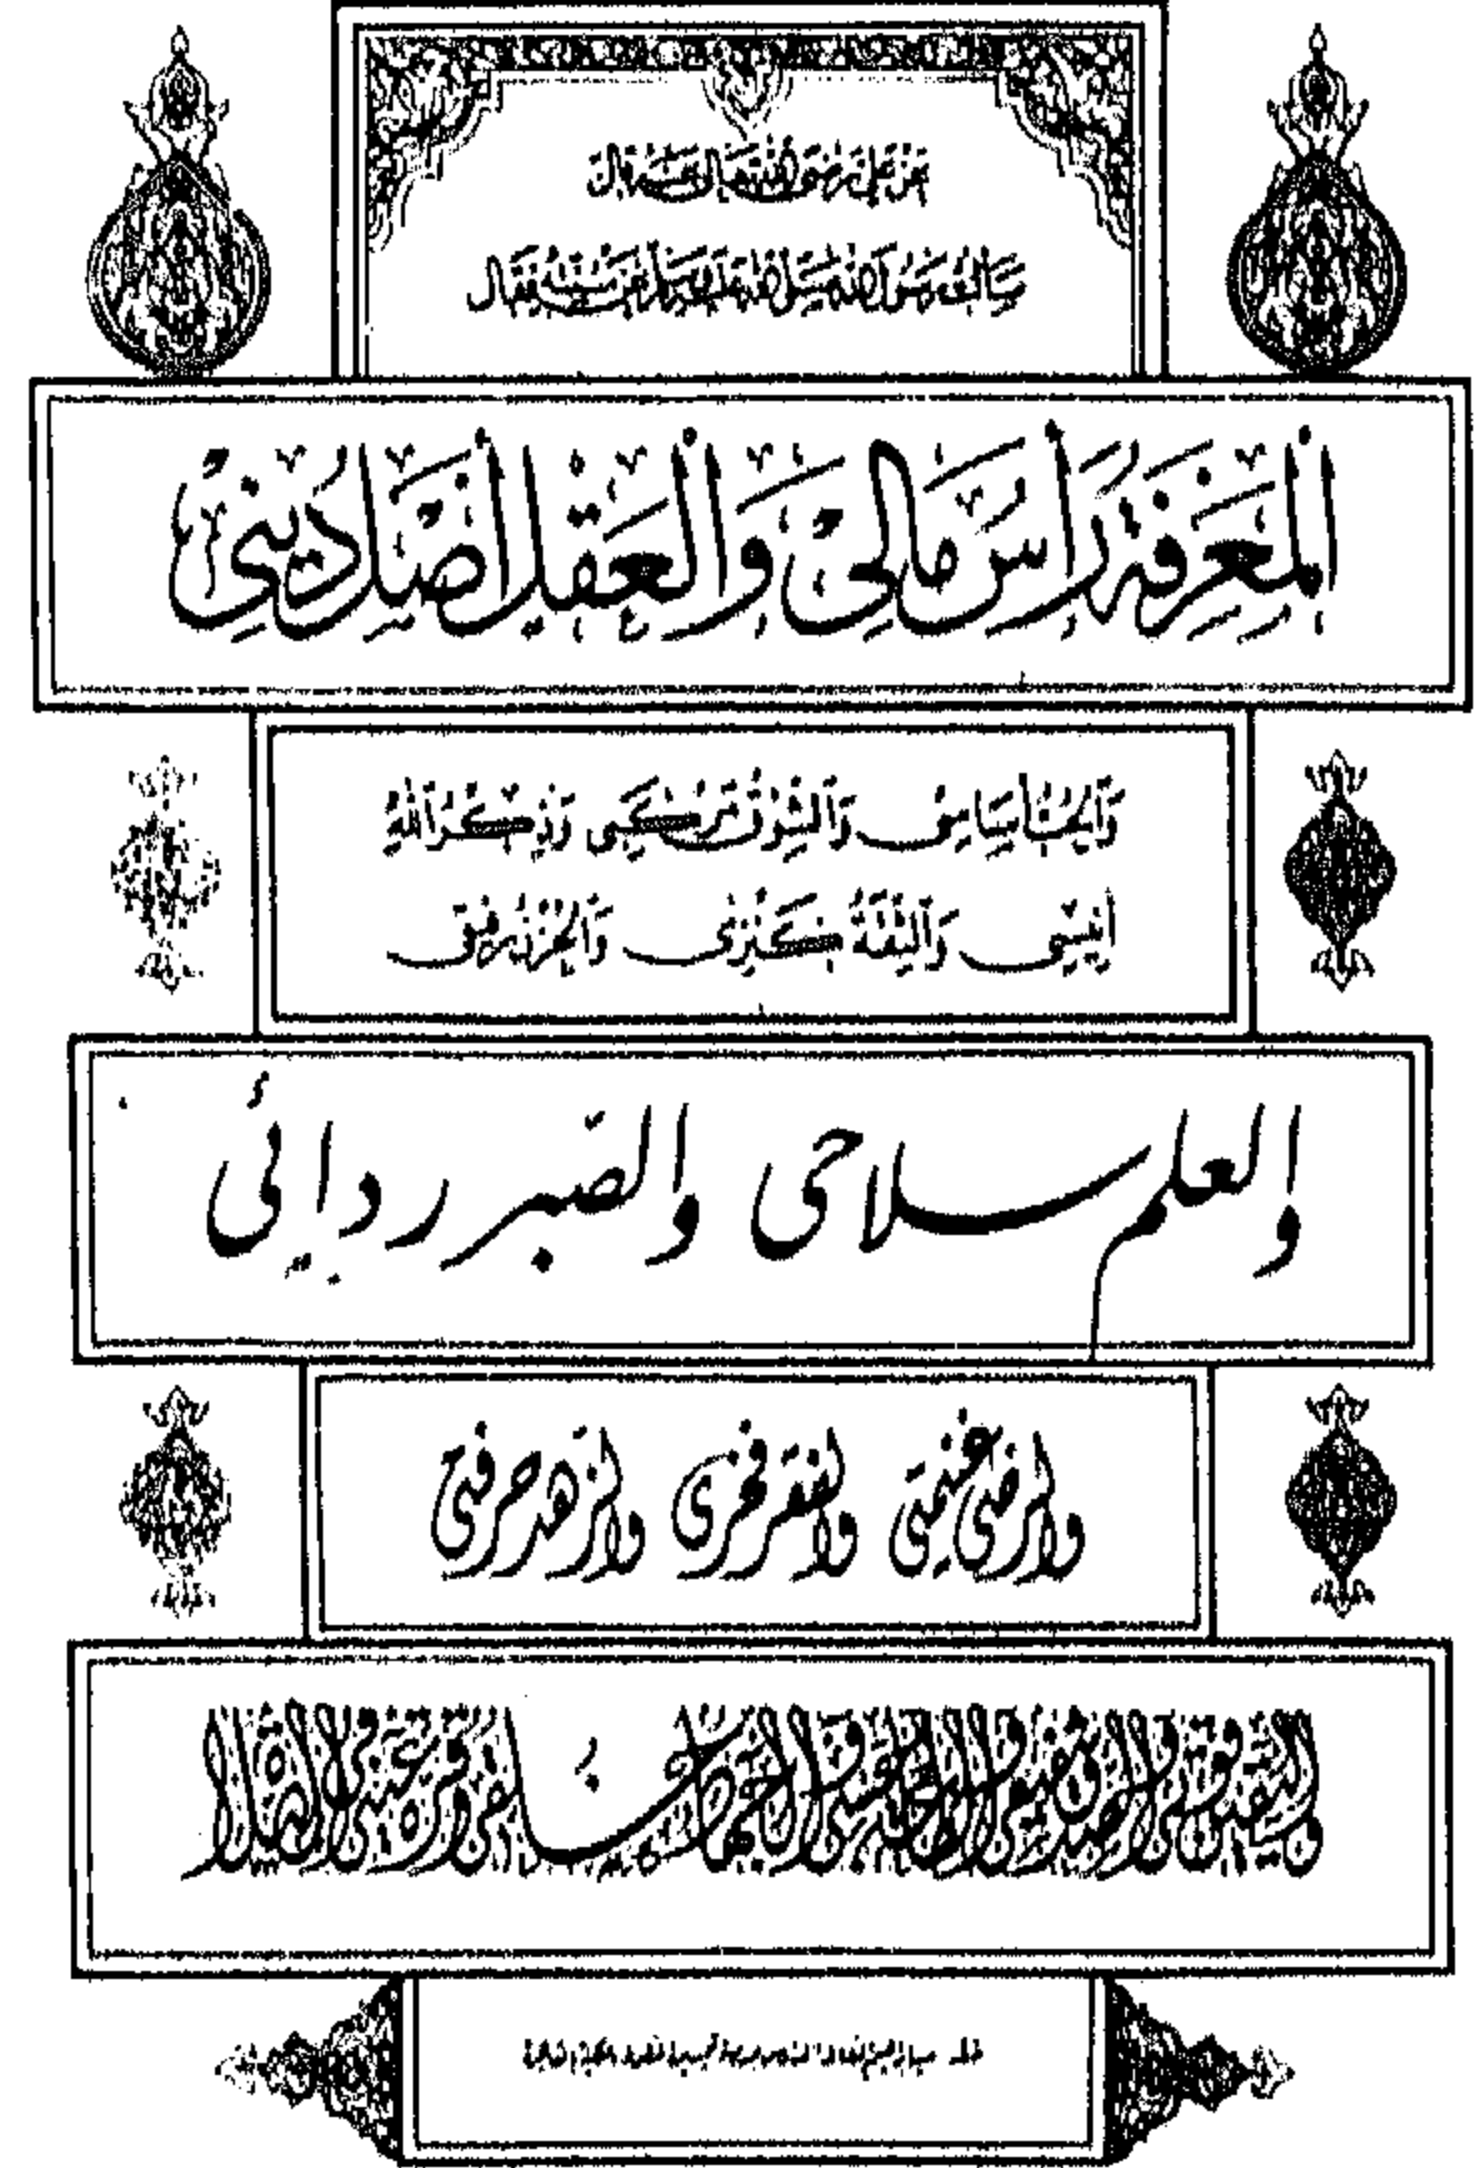 عَنْ عَلِيٍّ رَضِيَ اللهُ تَعَالَى عَنْهُ قَالَ
سَأَلْتُ رَسُولَ اللهِ صَلَّى اللهُ عَلَيْهِ وَسَلَّمَ عَنْ سُنَّتِهِ فَقَالَ
اَلْمَعْرِفَةُ رَأْسُ مَالِي وَالْعَقْلُ أَصْلُ دِينِي
وَالْحُبُّ أَسَاسِي وَالشَّوْقُ مَرْكَبِي وَذِكْرُ اللهِ
أَنِيسِي وَالثِّقَةُ كَنْزِي وَالْحُزْنُ رَفِيقِي
والعلم سلاحي والصبر ردائي
والرضى غنيمتي والفقر فخري والزهد حرفتي
واليقين قوتي والصدق شفيعي والطاعة حسبي والجهاد خلقي وقرة عيني في الصلاة